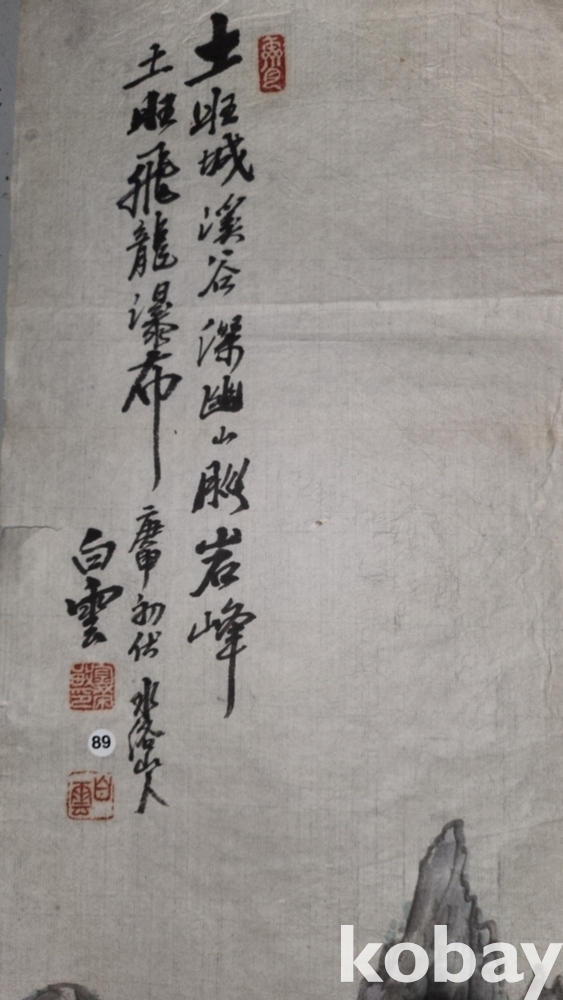 土旺城溪谷深幽山岩峰
土旺飛龍瀑布
庚申初伏 水山人
白雲
89
白雲
kobay